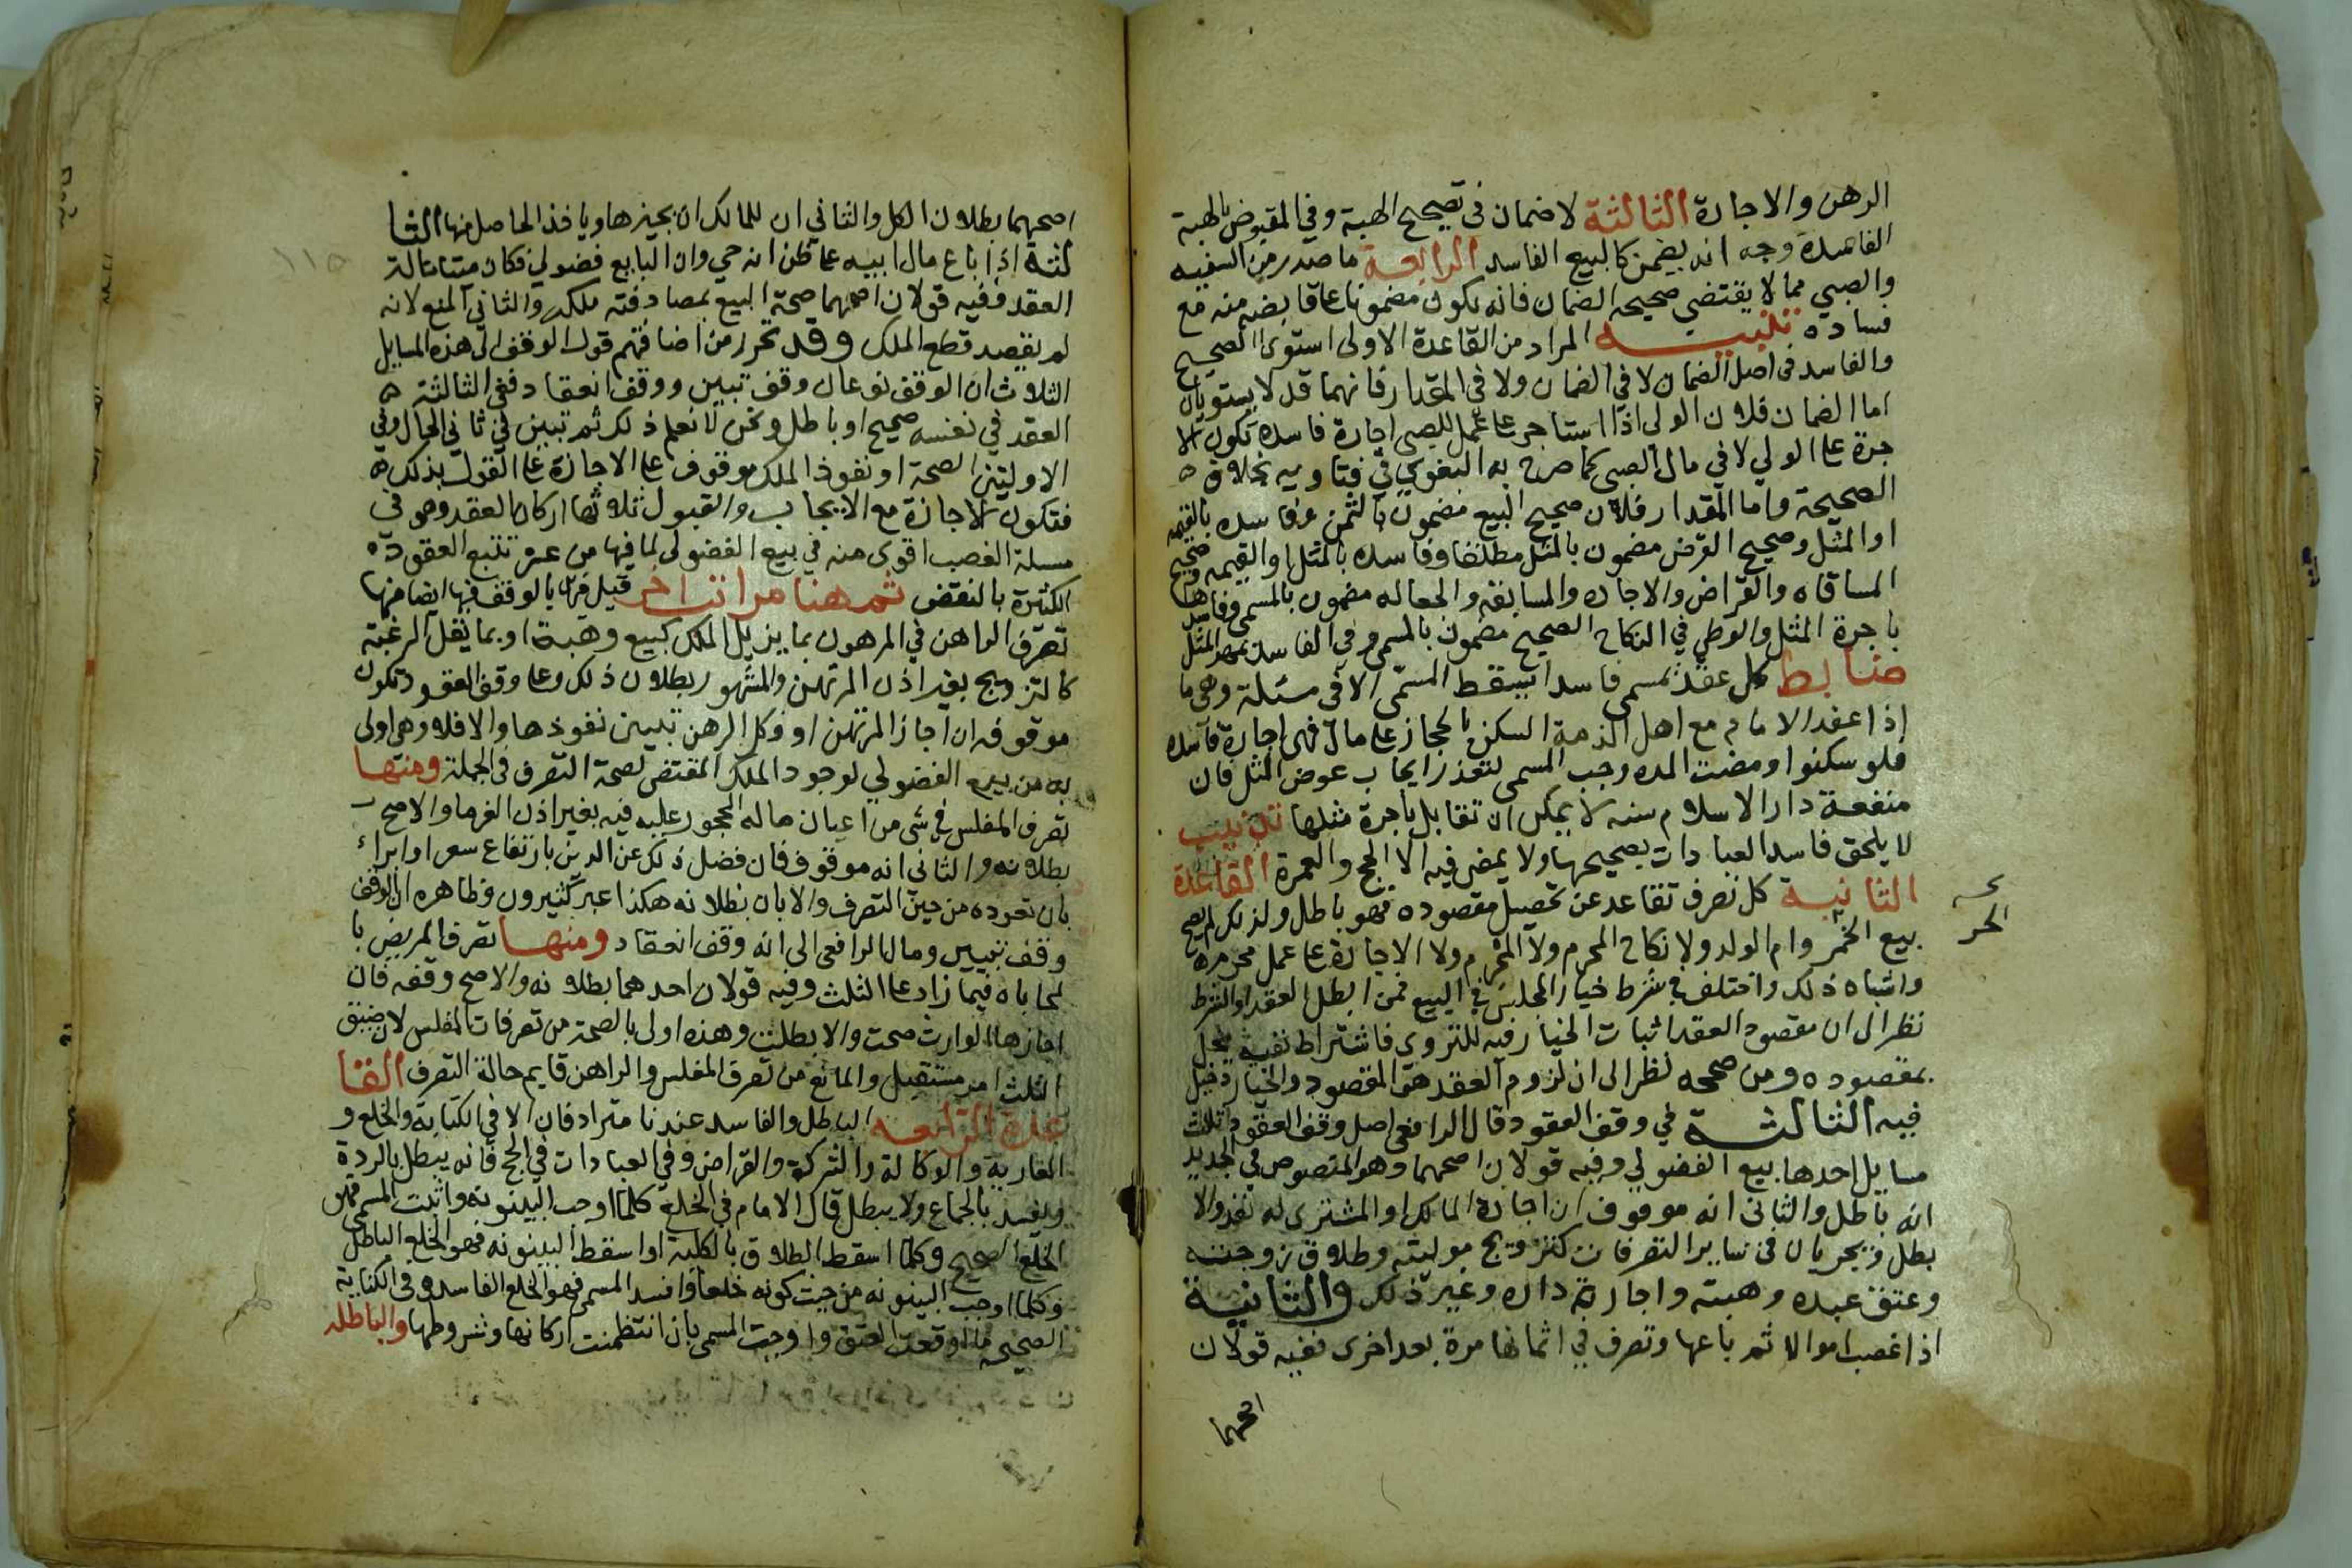 الرهن والاجارة الثالثة لاضمان في تصحيح الهبة وفي المقبوض بالهبة
الفاسدة وجه انه يضمن كالبيع الفاسد الرابعة ما صدر من السفيه
والصبي مما لا يقتضي صحيحه الضمان فانه يكون مضمونا عا قابضه منه مع
فساده تنبيه المراد من القاعدة الاولى استوى الصحيح
والفاسد في اصل الضمان لا في الضمان ولا في المقدار فانهما قد لا يستويان
اما الضمان فلان الولي اذا استاجر عا عمل للصبى اجارة فاسده تكون الا
جرة عا الولي لا في مال الصبى كما صرح به البغوي في فتاويه بخلاف ه
الصحيحة واما المقدار فلان صحيح البيع مضمون بالثمن وفاسده بالقيمه
او المثل وصحيح القرض مضمون بالمثل مطلقا وفاسده بالمثل او القيمه وصحيح
المساقاه والقراض والاجاره والمسابقه والجعاله مضمون بالمسمى وفاسدها
باجرة المثل والوطي في النكاح الصحيح مضمون بالمسمى وفي الفاسد بمهر المثل
ضابط كل عقد بمسمى فاسدا يسقط المسمى الا في مسئلة وهي ما
اذا عقد الامام مع اهل الذمة السكنى بالحجاز على مال فهى اجارة فاسده
فلو سكنوا ومضت المده وجب المسمى لتعذر ايجاب عوض المثل فان
منفعة دار الاسلام سنه لا يمكن ان تقابل باجرة مثلها تذنيب
لا يلحق فاسد العبادات بصحيحها ولا يمضى فيه الا الحج والعمرة القاعدة
الثانية كل تصرف تقاعد عن تحصيل مقصوده فهو باطل ولذلك لم يصح
بيع الخمر وام الولد ولا نكاح المحرم ولا المحرم ولا الاجارة عا عمل محرم ه
الحر
واشباه ذلك واختلف في شرط خيار المجلس في البيع فمن ابطل العقد او الشرط
نظر الى ان مقصود العقد اثبات الخيار فيه للتروي فاشتراط نفيه يخل
بمقصوده ومن صححه نظر الى ان لزوم العقد هو المقصود والخيار دخيل
فيه الثالثة في وقف العقود قال الرافعي اصل وقف العقود ثلث
مسايل احدها بيع الفضولي وفيه قولان اصحهما وهو المنصوص في الجديد
انه باطل والثاني انه موقوف ان اجازه المالك او المشترى له نفذ والا
بطل ويجريان في ساير التصرفات كتزويج موليته وطلاق زوجته
وعتق عبده وهبته واجارة داره وغير ذلك والثانية
اذا غصب اموالا ثم باعها وتصرف في اثمانها مرة بعد اخرى ففيه قولان
اصحهما
١١٥
اصحهما بطلان الكل والثاني ان للمالك ان يجيزها وياخذ الحاصل منها الثا
لثة اذا باع مال ابيه عا ظن انه حي وان البايع فضولي فكان ميتا حالة
العقد ففيه قولان اصحهما صحة البيع بمصادفته ملكه والثاني المنع لانه
لم يقصد قطع الملك وقد تحرر من اضافتهم قول الوقف الى هذه المسايل
الثلاث ان الوقف نوعان وقف تبين ووقف انعقاد ففى الثالثة ه
العقد في نفسه صحيح او باطل ونحن لا نعلم ذلك ثم تبين في ثاني الحال وفي
الاوليين الصحة او نفوذ الملك موقوف عا الاجازة عا القول بذلك ه
فتكون الاجازة مع الايجاب والقبول ثلاثها اركان العقد وهو في
مسلة الغصب اقوى منه في بيع الفضولي لما فيها من عسر تتبع العقود ه
الكثيرة بالنقض ثم هنا مراتب اخر قيل فيها بالوقف فيها ايضا فمنها
تصرف الراهن في المرهون بما يزيل الملك كبيع وهبة او بما يقل الرغبة
كالتزويج بغير اذن المرتهن والمشهور بطلان ذلك وعا وقف العقود تكون
موقوفه ان اجاز المرتهن او فك الرهن تبين نفوذها والا فلا وهى اولى
به من بيع الفضولي لوجود الملك المقتضى لصحة التصرف في الجملة ومنها
تصرف المفلس في شى من اعيان ماله المحجور عليه فيه بغير اذن الغرما والاصح
بطلانه والثاني انه موقوف فان فضل ذلك عن الدين بارتفاع سعر او ابراء
بان نفوذه من حين التصرف والا بان بطلانه هكذا عبر كثيرون وظاهره ان الوقف
وقف تبيين ومال الرافعى الى انه وقف انعقاد ومنها تصرف المريض با
لمحاباه فيما زاد عا الثلث وفيه قولان احدهما بطلانه والاصح وقفه فان
اجازها الوارث صحت والا بطلت وهذه اولى بالصحة من تصرفات المفلس لان ضيق
الثلث امر مستقبل والمانع من تصرف المفلس والراهن قايم حالة التصرف القا
عدة الرابعه الباطل والفاسد عندنا مترادفان الا في الكتابة والخلع و
العارية والوكالة والشركة والقراض وفي العبادات في الحج فانه يبطل بالردة
ويفسد بالجماع ولا يبطل قال الامام في الخلع كلما اوجب البينونه واثبت المسمى فهو
الخلع الصحيح وكلما اسقط الطلاق بالكلية او اسقط البينونه فهو الخلع الباطل
وكلما اوجب البينونه من حيث كونه خلعا وافسد المسمى فهو الخلع الفاسد وفي الكتابة
الصحيحه ما اوقعت العتق واوجبت المسمى بان انتظمت اركانها وشروطها والباطله